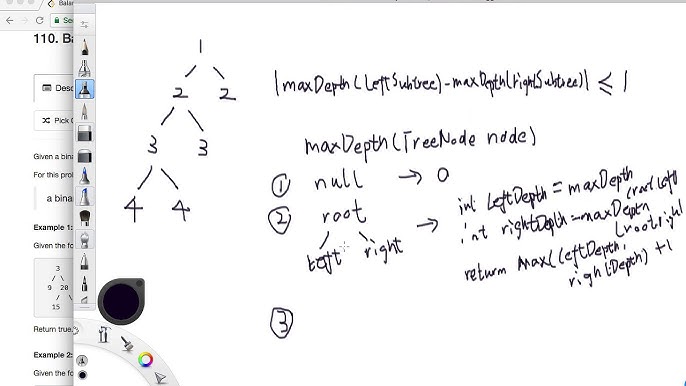 Bala
Sec
110. Ba
Desc
Pick O
Given a bina
For this prob
a binar
Example 1:
Given the fo
3
/ \
9 20
/
15
Return true.
Example 2:
Given the fo
1
2 2
3 3
4 4
|maxDepth(leftSubtree)-maxDepth(rightSubtree)| ≤ 1
maxDepth(TreeNode node)
① null → 0
② root
left right
→ int leftDepth = maxDepth(root.left
int rightDepth = maxDepth(root.right
return max(leftDepth, rightDepth) +1
③